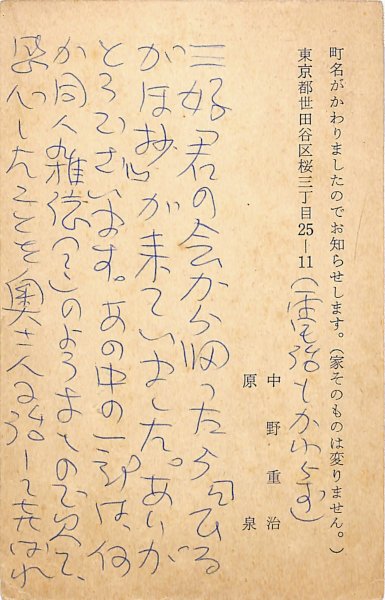 町名がかわりましたのでお知らせします。(家そのものは変りません。)
東京都世田谷区桜三丁目25—11(電話もかわらず)
中野重治
原 泉
三好君の会から帰ったら君の
がは抄が来ていました。ありが
とうございます。あの中の一部は、何
か同人雑誌のようなもので見て、
感心したことを奥さんに話して